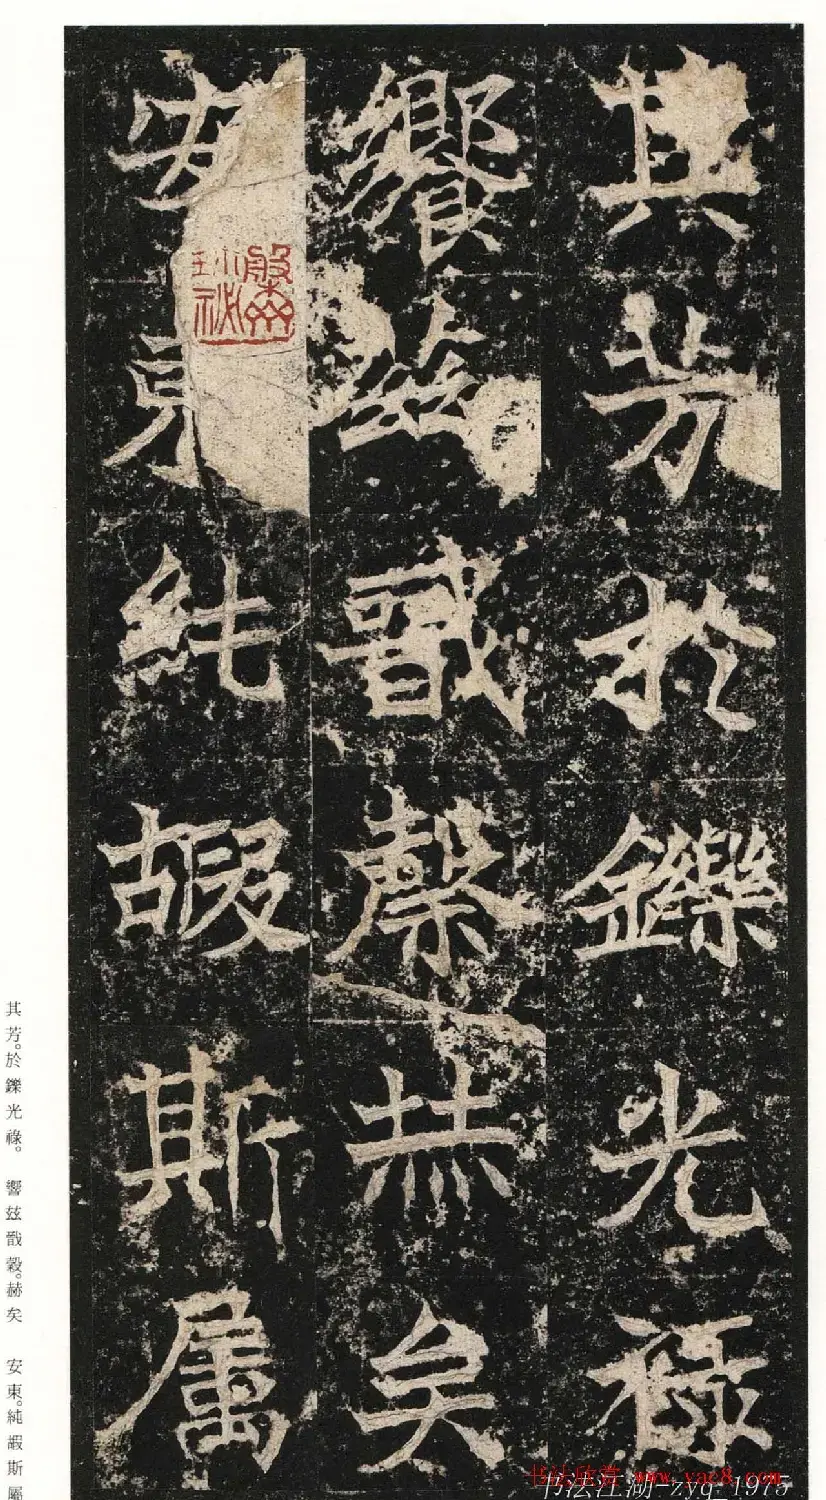 其芳於鑠光祿
饗茲戩穀赫矣
安東純嘏斯属
其芳。於鑠光祿。 饗茲戩穀。赫矣 安東。純嘏斯屬
书法欣赏 www.yac8.com
书法江湖-zyq-1975